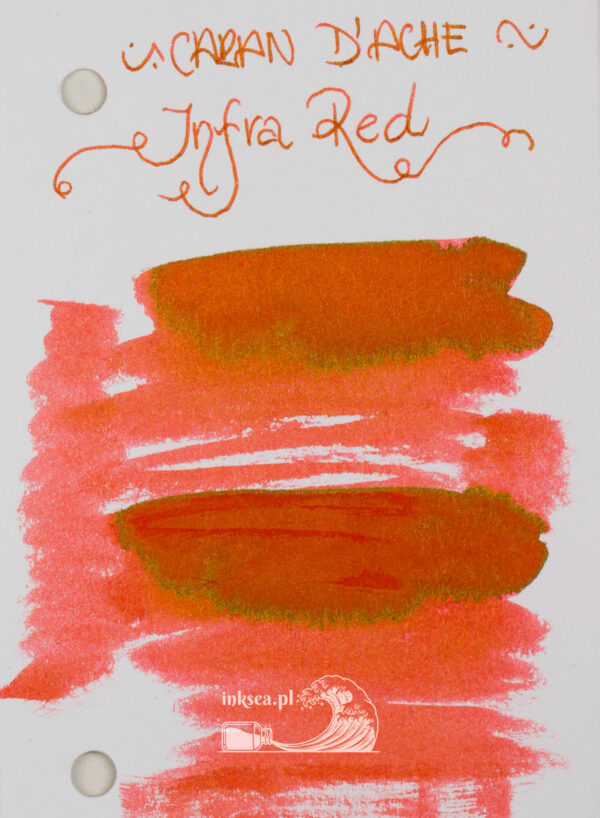 CARAN D'ACHE
Infra Red
inksea.pl